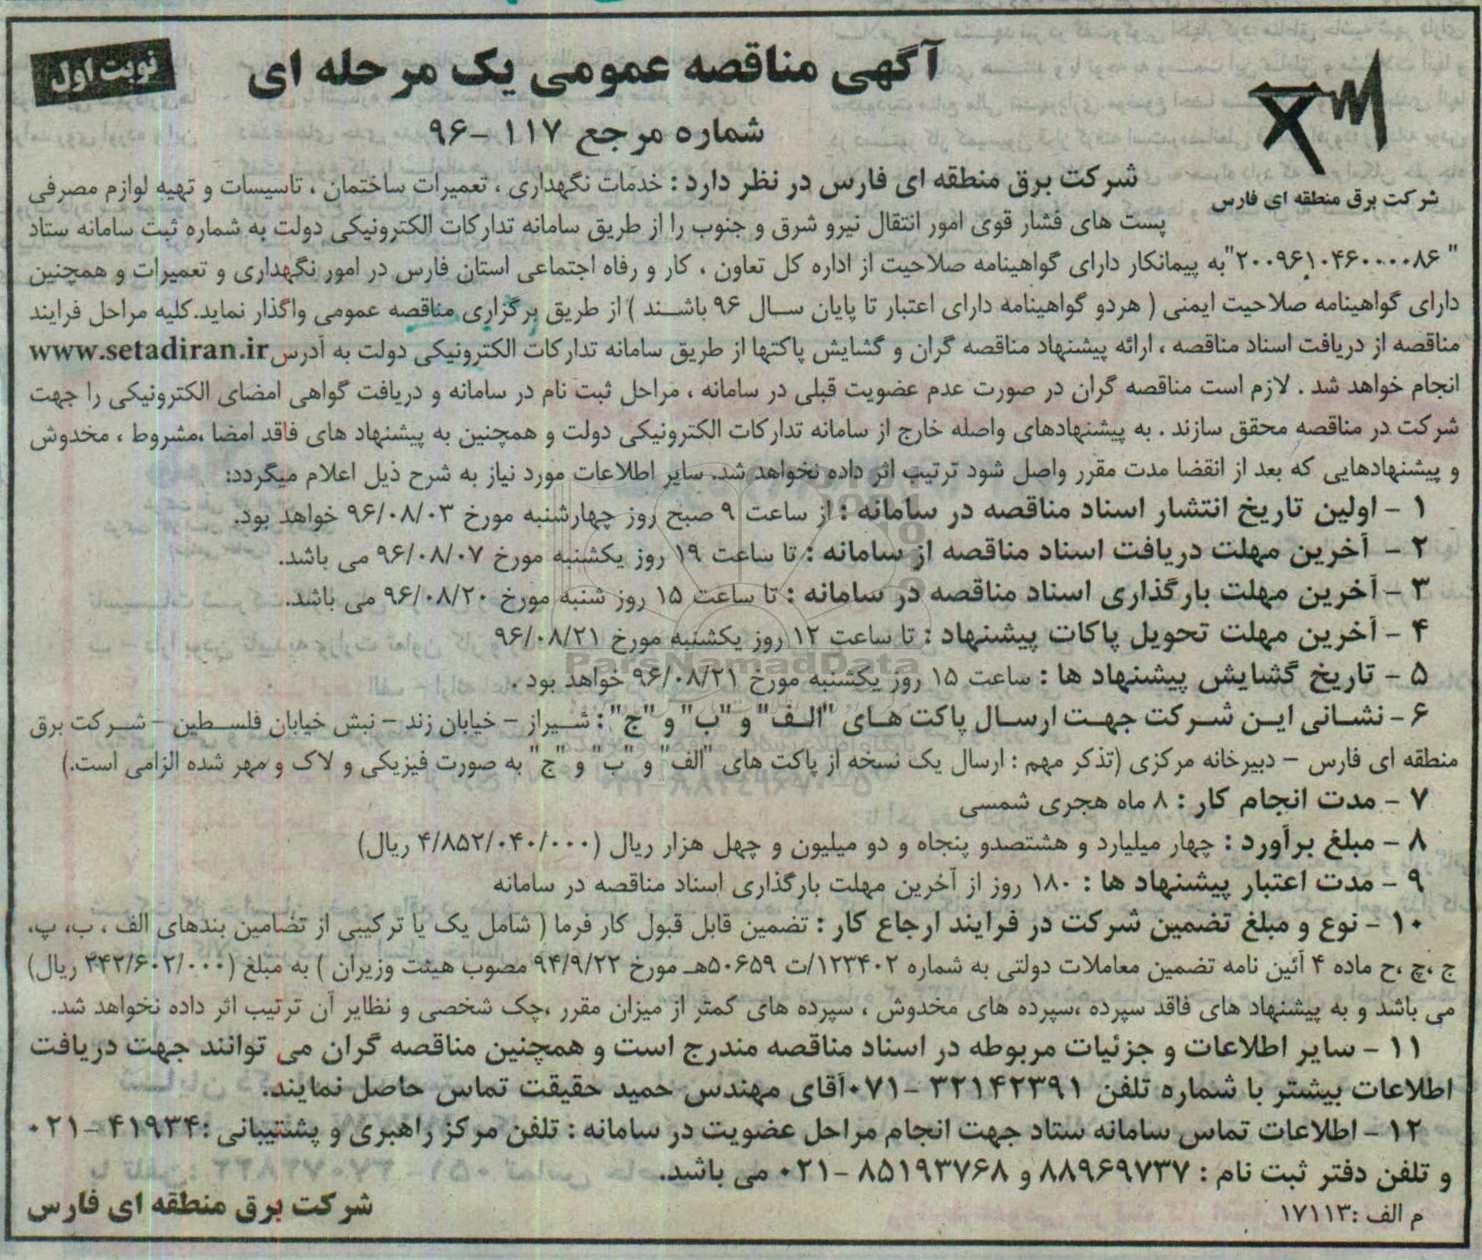 نوبت اول
آگهی مناقصه عمومی یک مرحله ای
شماره مرجع ۱۱۷ -۹۶
شرکت برق منطقه ای فارس
شرکت برق منطقه ای فارس در نظر دارد : خدمات نگهداری ، تعمیرات ساختمان ، تاسیسات و تهیه لوازم مصرفی
پست های فشار قوی امور انتقال نیرو شرق و جنوب را از طریق سامانه تدارکات الکترونیکی دولت به شماره ثبت سامانه ستاد
" ۲۰۰۹۶۱۰۴۶۰۰۰۰۸۶"به پیمانکار دارای گواهینامه صلاحیت از اداره کل تعاون ، کار و رفاه اجتماعی استان فارس در امور نگهداری و تعمیرات و همچنین
دارای گواهینامه صلاحیت ایمنی ( هردو گواهینامه دارای اعتبار تا پایان سال ۹۶ باشند ) از طریق برگزاری مناقصه عمومی واگذار نماید.کلیه مراحل فرایند
مناقصه از دریافت اسناد مناقصه ، ارائه پیشنهاد مناقصه گران و گشایش پاکتها از طریق سامانه تدارکات الکترونیکی دولت به آدرس www.setadiran.ir
انجام خواهد شد . لازم است مناقصه گران در صورت عدم عضویت قبلی در سامانه ، مراحل ثبت نام در سامانه و دریافت گواهی امضای الکترونیکی را جهت
شرکت در مناقصه محقق سازند . به پیشنهادهای واصله خارج از سامانه تدارکات الکترونیکی دولت و همچنین به پیشنهاد های فاقد امضا ،مشروط ، مخدوش
و پیشنهادهایی که بعد از انقضا مدت مقرر واصل شود ترتیب اثر داده نخواهد شد. سایر اطلاعات مورد نیاز به شرح ذیل اعلام میگردد:
۱ - اولین تاریخ انتشار اسناد مناقصه در سامانه : از ساعت ۹ صبح روز چهارشنبه مورخ ۹۶/۰۸/۰۳ خواهد بود.
۲ - آخرین مهلت دریافت اسناد مناقصه از سامانه : تا ساعت ۱۹ روز یکشنبه مورخ ۹۶/۰۸/۰۷ می باشد.
۳ - آخرین مهلت بارگذاری اسناد مناقصه در سامانه : تا ساعت ۱۵ روز شنبه مورخ ۹۶/۰۸/۲۰ می باشد.
۴ - آخرین مهلت تحویل پاکات پیشنهاد : تا ساعت ۱۲ روز یکشنبه مورخ ۹۶/۰۸/۲۱
ParsNamadData
۵ - تاریخ گشایش پیشنهاد ها : ساعت ۱۵ روز یکشنبه مورخ ۹۶/۰۸/۲۱ خواهد بود .
۶ - نشانی این شرکت جهت ارسال پاکت های "الف" و "ب" و "ج" : شیراز - خیابان زند - نبش خیابان فلسطین - شرکت برق
منطقه ای فارس - دبیرخانه مرکزی (تذکر مهم : ارسال یک نسخه از پاکت های "الف" و "ب" و "ج" به صورت فیزیکی و لاک و مهر شده الزامی است.)
۷ - مدت انجام کار : ۸ ماه هجری شمسی
۸ - مبلغ برآورد : چهار میلیارد و هشتصدو پنجاه و دو میلیون و چهل هزار ریال (۴/۸۵۲/۰۴۰/۰۰۰ ریال)
۹ - مدت اعتبار پیشنهاد ها : ۱۸۰ روز از آخرین مهلت بارگذاری اسناد مناقصه در سامانه
۱۰ - نوع و مبلغ تضمین شرکت در فرایند ارجاع کار : تضمین قابل قبول کار فرما ( شامل یک یا ترکیبی از تضامین بندهای الف ، ب، پ،
ج ،چ ،ح ماده ۴ آئین نامه تضمین معاملات دولتی به شماره ۱۲۳۴۰۲/ت ۵۰۶۵۹هـ مورخ ۹۴/۹/۲۲ مصوب هیئت وزیران ) به مبلغ (۲۴۲/۶۰۲/۰۰۰ ریال)
می باشد و به پیشنهاد های فاقد سپرده ،سپرده های مخدوش ، سپرده های کمتر از میزان مقرر ،چک شخصی و نظایر آن ترتیب اثر داده نخواهد شد.
۱۱ - سایر اطلاعات و جزئیات مربوطه در اسناد مناقصه مندرج است و همچنین مناقصه گران می توانند جهت دریافت
اطلاعات بیشتر با شماره تلفن ۳۲۱۴۲۳۹۱ -۰۷۱آقای مهندس حمید حقیقت تماس حاصل نمایند.
۱۲ - اطلاعات تماس سامانه ستاد جهت انجام مراحل عضویت در سامانه : تلفن مرکز راهبری و پشتیبانی :۴۱۹۳۴ -۰۲۱
و تلفن دفتر ثبت نام : ۸۸۹۶۹۷۳۷ و ۸۵۱۹۳۷۶۸ -۰۲۱ می باشد.
م الف :۱۷۱۱۳
شرکت برق منطقه ای فارس